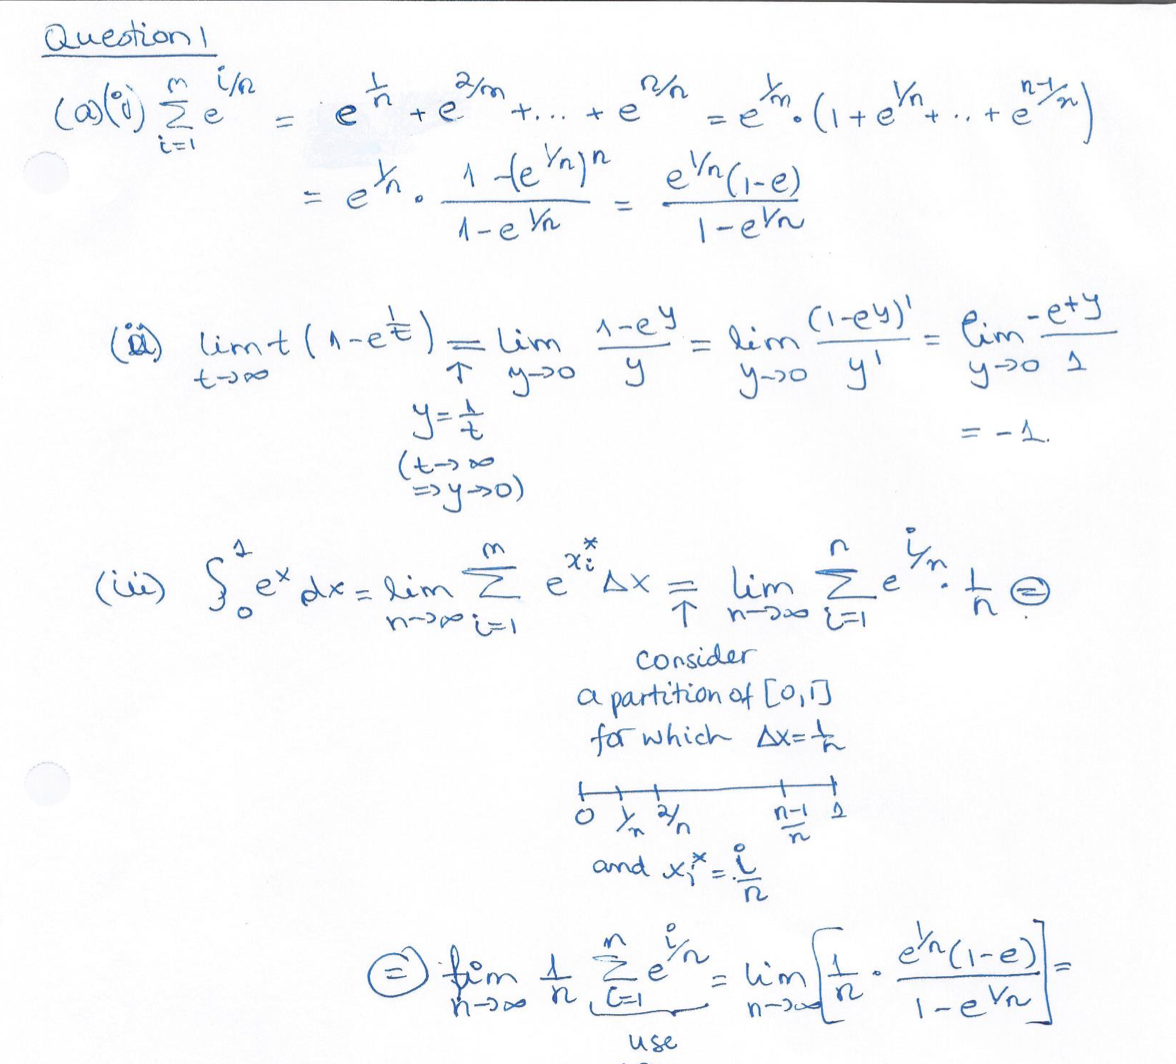 Question 1
(a)(i) \sum_{i=1}^{n} e^{i/n} = e^{\frac{1}{n}} + e^{2/n} + ... + e^{n/n} = e^{1/n} \cdot (1 + e^{1/n} + .. + e^{n-1/n})
= e^{1/n} \cdot \frac{1-(e^{1/n})^n}{1-e^{1/n}} = \frac{e^{1/n}(1-e)}{1-e^{1/n}}
(ii) \lim_{t→∞} t(1-e^{\frac{1}{t}}) = \lim_{y→0} \frac{1-e^y}{y} = \lim_{y→0} \frac{(1-e^y)'}{y'} = \lim_{y→0} \frac{-e^{+y}}{1}
↑
y = \frac{1}{t}
= -1.
(t→∞
⇒ y→0)
(iii) \int_0^1 e^x dx = \lim_{n→∞} \sum_{i=1}^{n} e^{x_i^*} Δx = \lim_{n→∞} \sum_{i=1}^{n} e^{i/n} \cdot \frac{1}{n} ⊜
↑
consider
a partition of [0,1]
for which Δx = \frac{1}{n}
0 1/n 2/n \frac{n-1}{n} 1
and x_i^* = \frac{i}{n}
⊜ \lim_{n→∞} \frac{1}{n} \sum_{i=1}^{n} e^{i/n} = \lim_{n→∞} [\frac{1}{n} \cdot \frac{e^{1/n}(1-e)}{1-e^{1/n}}] =
use